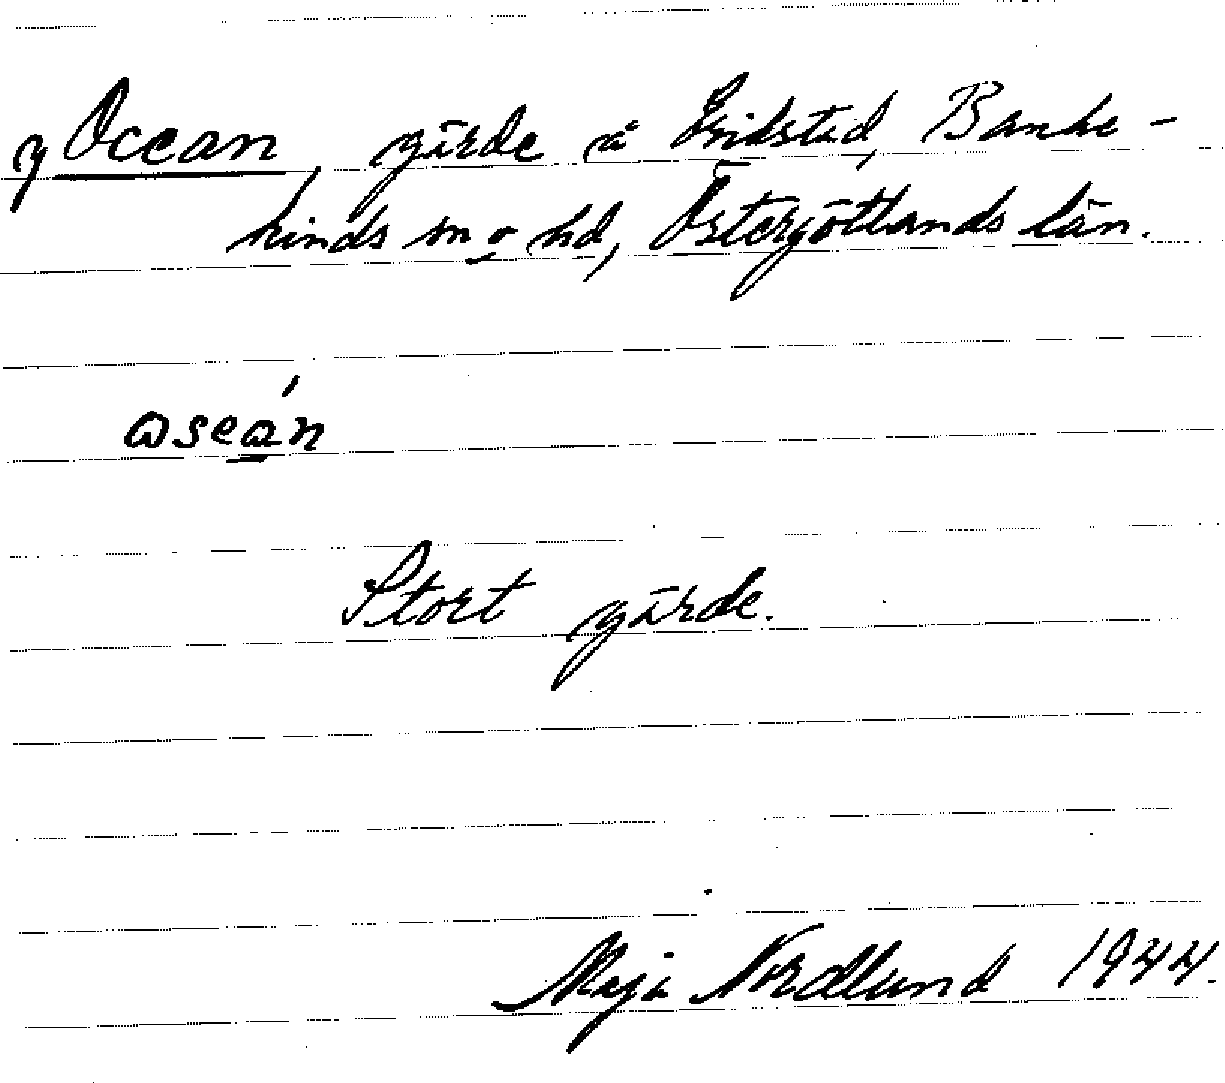 γ Ocean, gärde å Eridstad, Banke-
kinds sn o hd, Östergötlands län.
ɷseán
Stort gärde.
Maja Nordlund 1944.